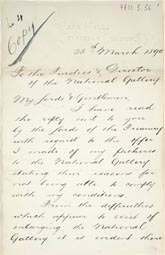 Copy
23rd March 1890
To the Trustees & Director
of the National Gallery
My Lords & Gentlemen
I have read
the reply sent to you
by the Lords of the Treasury
with regard to the offer
I made of my pictures
to the National Gallery
stating their reasons for
not being able to comply
with my conditions
From the difficulties
which appear to exist of
enlarging the National
Gallery it is evident there